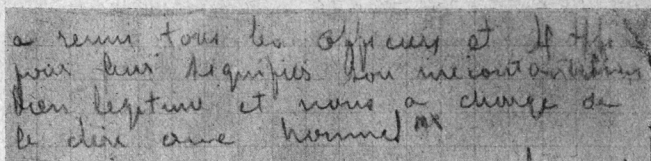 a reuni tous les officiers et S Off
pour leur signifier son mécontentement
bien legitime et nous a chargé de
le dire aux hommes